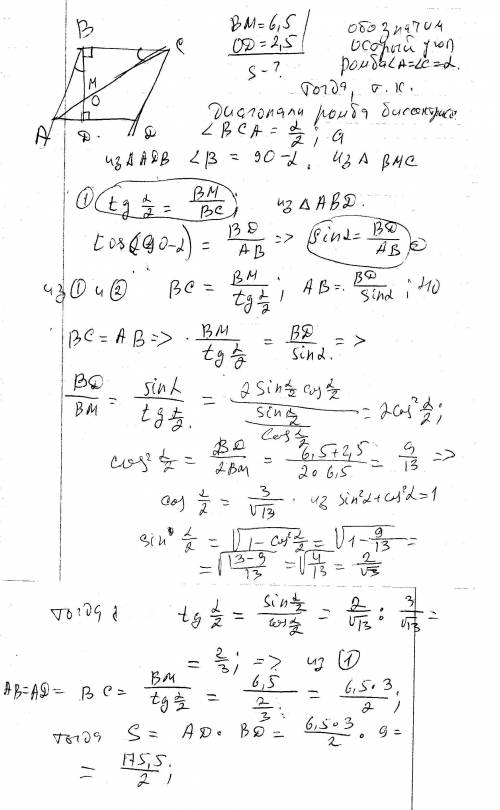 B
C
M
O
A
D
D
BM=6,5
OD=2,5
S-?
обозначим
острый угол
ромба ∠A=∠C=α.
Тогда, т.к.
диагонали ромба биссектрисы
∠BCA = α/2; а
из △ADB ∠B = 90-α. из △ BMC
① tg α/2 = BM/BC; из △ABD.
cos(90-α) = BD/AB => sinα = BD/AB ②
из ① и ② BC = BM/tg α/2; AB = BD/sinα; но
BC = AB => BM/tg α/2 = BD/sinα. =>
BD/BM = sinα/tg α/2 = 2 sin α/2 cos α/2/(sin α/2/cos α/2) = 2cos² α/2;
cos² α/2 = BD/2BM = 6,5+2,5/2·6,5 = 9/13 =>
cos α/2 = 3/√13. из sin²α+cos²α=1
sin α/2 = √1-cos² α/2 = √1-9/13 =
= √13-9/13 = √4/13 = 2/√13
тогда tg α/2 = sin α/2/cos α/2 = 2/√13 : 3/√13 =
= 2/3; => из ①
AB=AD= BC= BM/tg α/2 = 6,5/(2/3) = 6,5·3/2;
тогда S = AD·BD = 6,5·3/2 · 9 =
= 175,5/2;